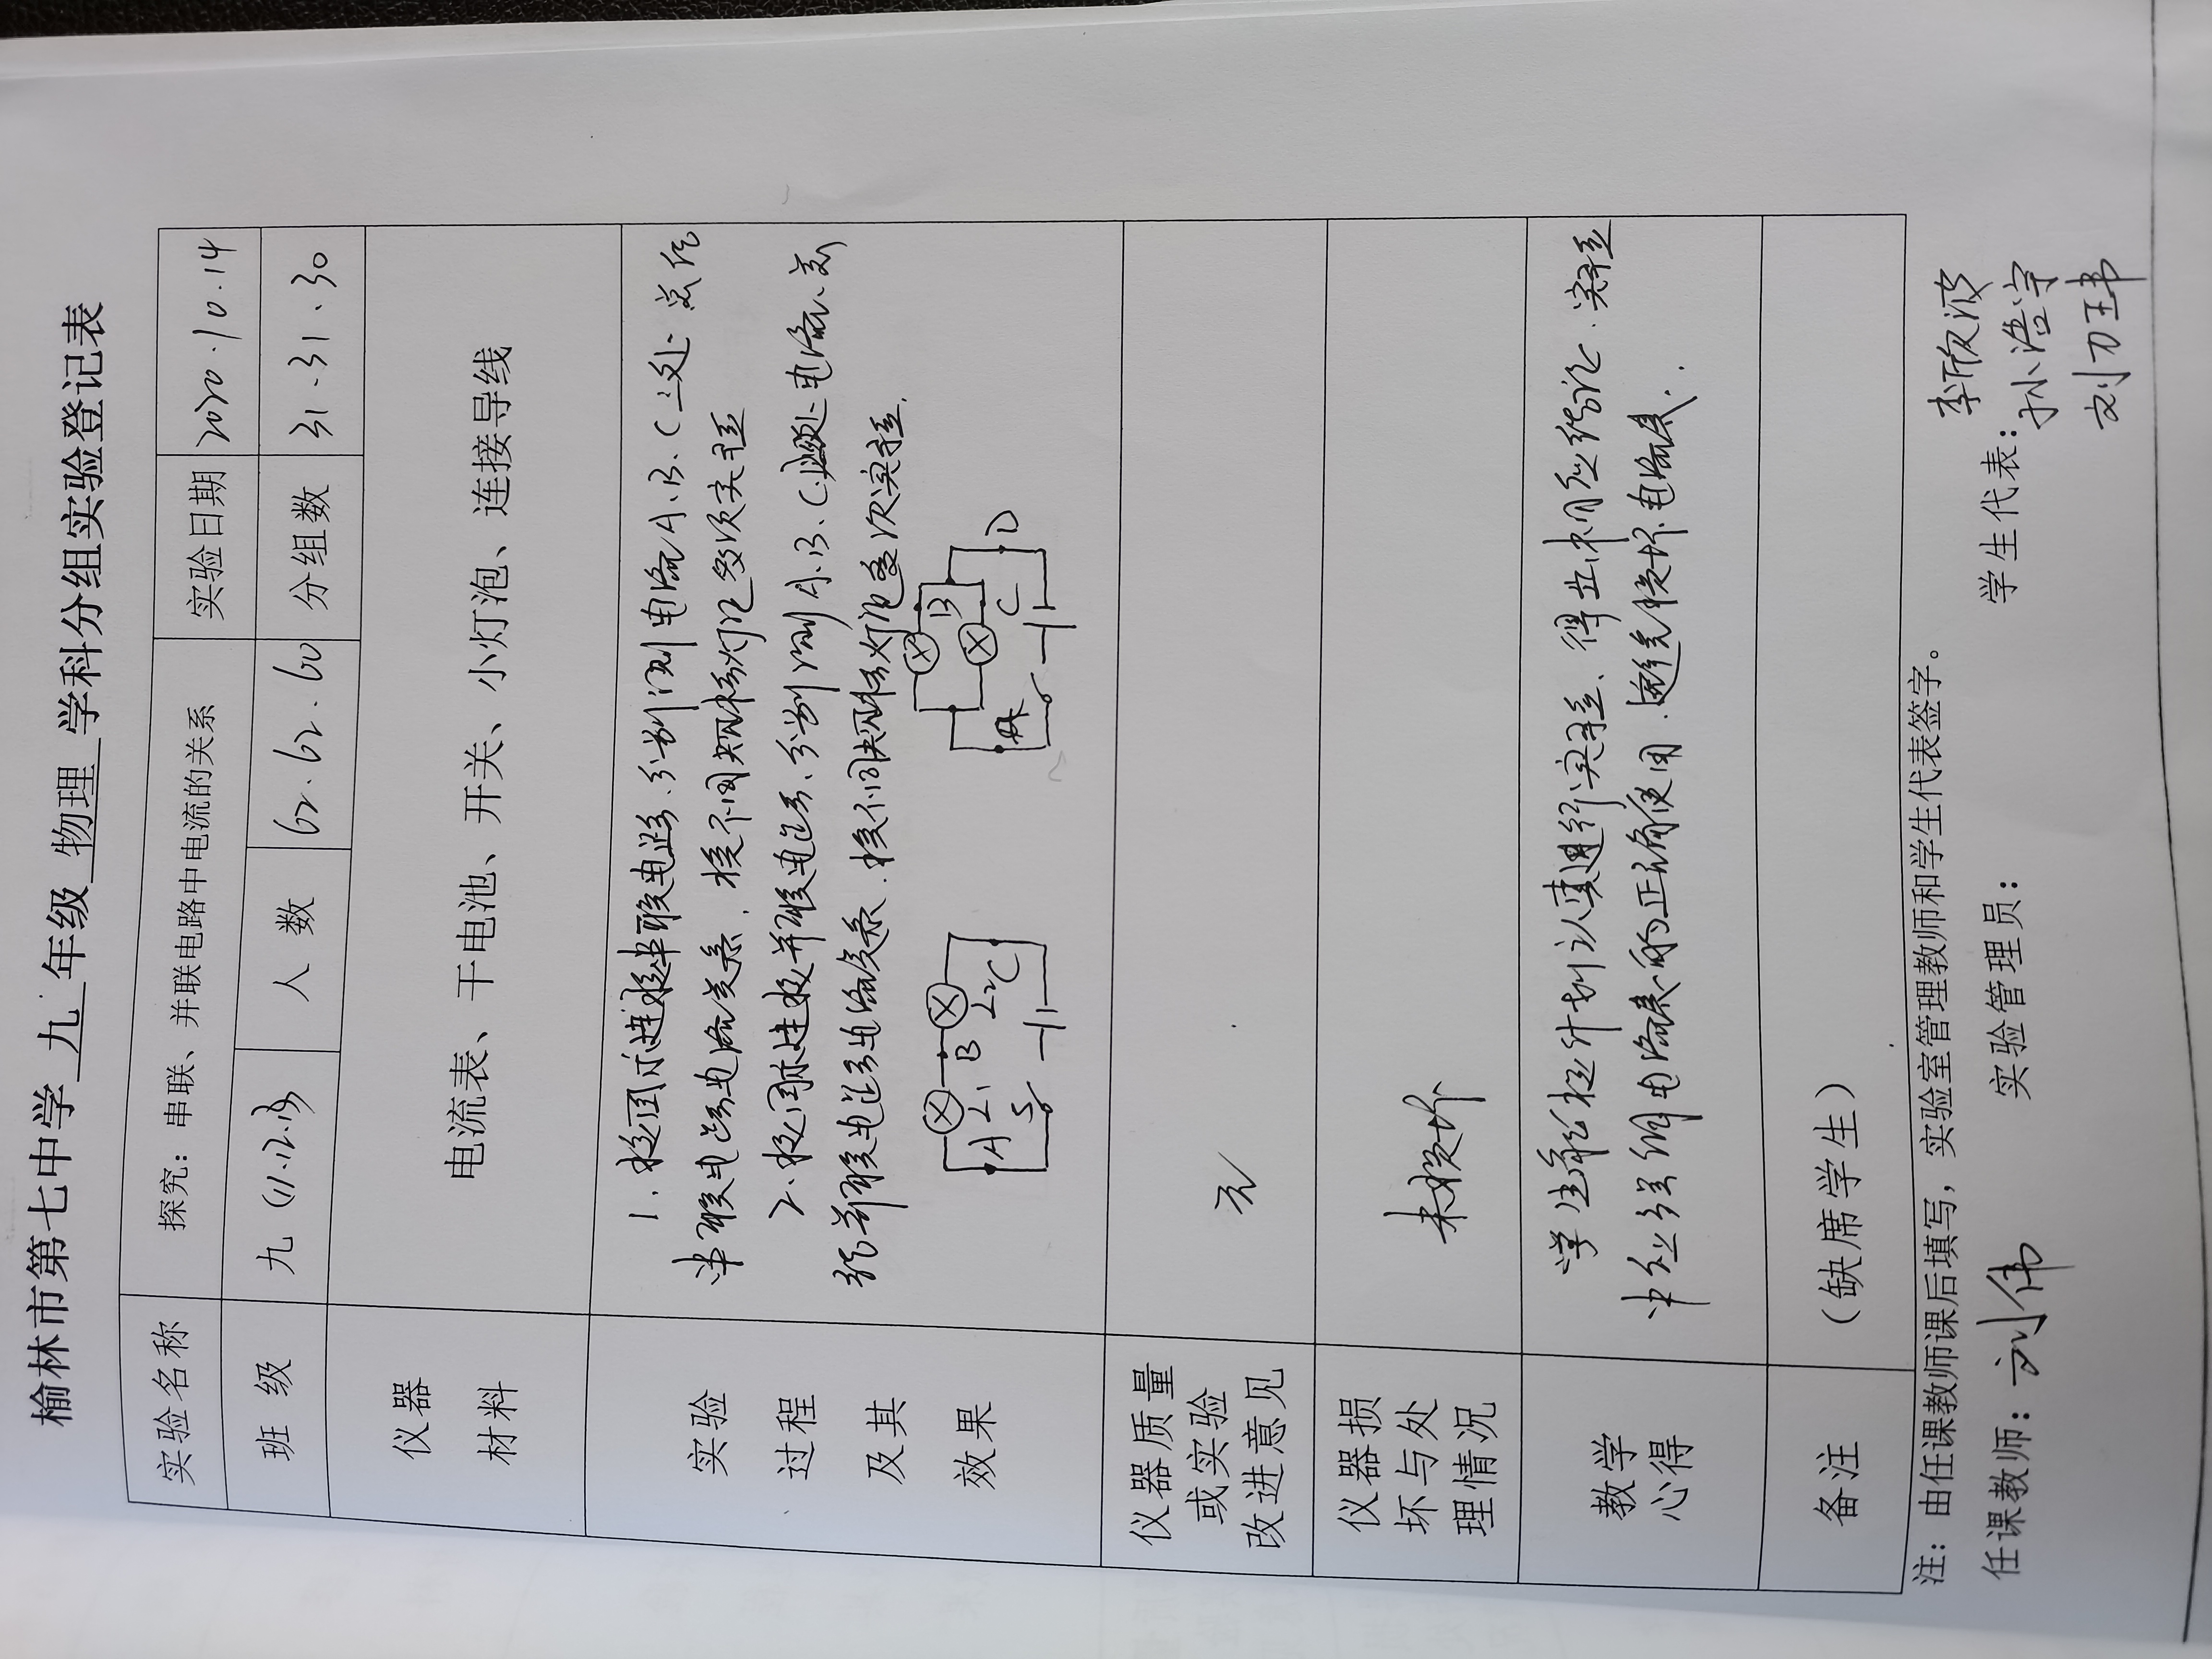 榆林市第七中学 九 年级 物理 学科分组实验登记表
实验名称 探究：串联、并联电路中电流的关系 实验日期 2020.10.14
班 级 九(1.2.3) 人 数 62.62.60 分组数 31.31.30
仪器
材料
电流表、干电池、开关、小灯泡、连接导线
实验
过程
及其
效果
1.按图示连接串联电路、分别测电流A.B.C三处 总结
串联电路电流关系.换不同规格灯泡多次实验
2.按图示连接并联电路、分别测A.B.C处电流、总
结并联电路电流关系.换不同规格灯泡多次实验.
A L1 B L2 C
S
A B C D
仪器质量
或实验
改进意见
无
仪器损
坏与处
理情况
未损坏
教学
心得
学生能按计划认真进行实验、得出相应结论.实验
中应强调电流表的正确使用.避免损坏电流表.
备注
（缺席学生）
注：由任课教师课后填写，实验室管理教师和学生代表签字。
任课教师：刘伟 实验管理员： 学生代表：李欣波
孙浩宇
刘万玮